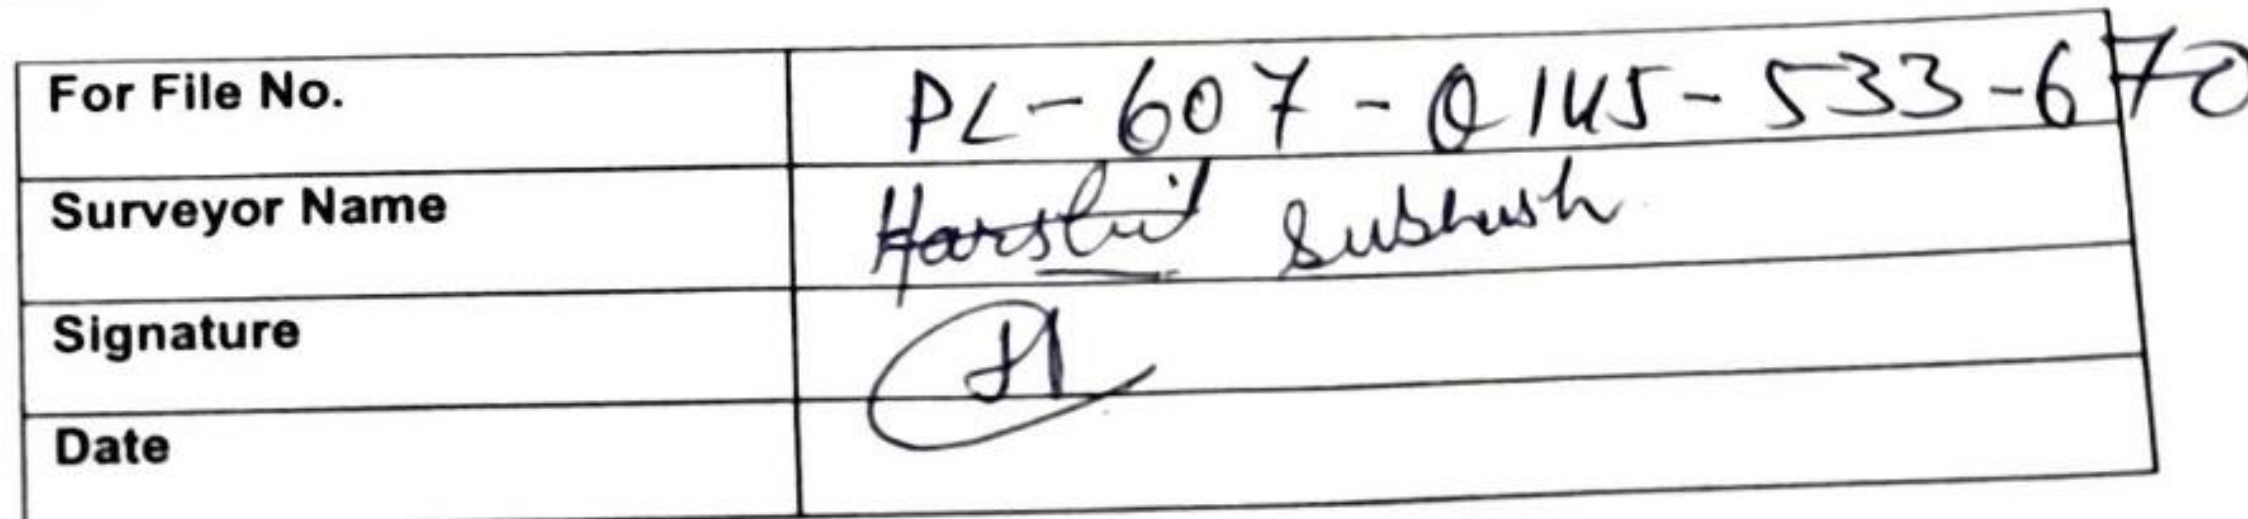 For File No. PL-607-Q145-533-670
Surveyor Name Harshit Subhash
Signature
Date